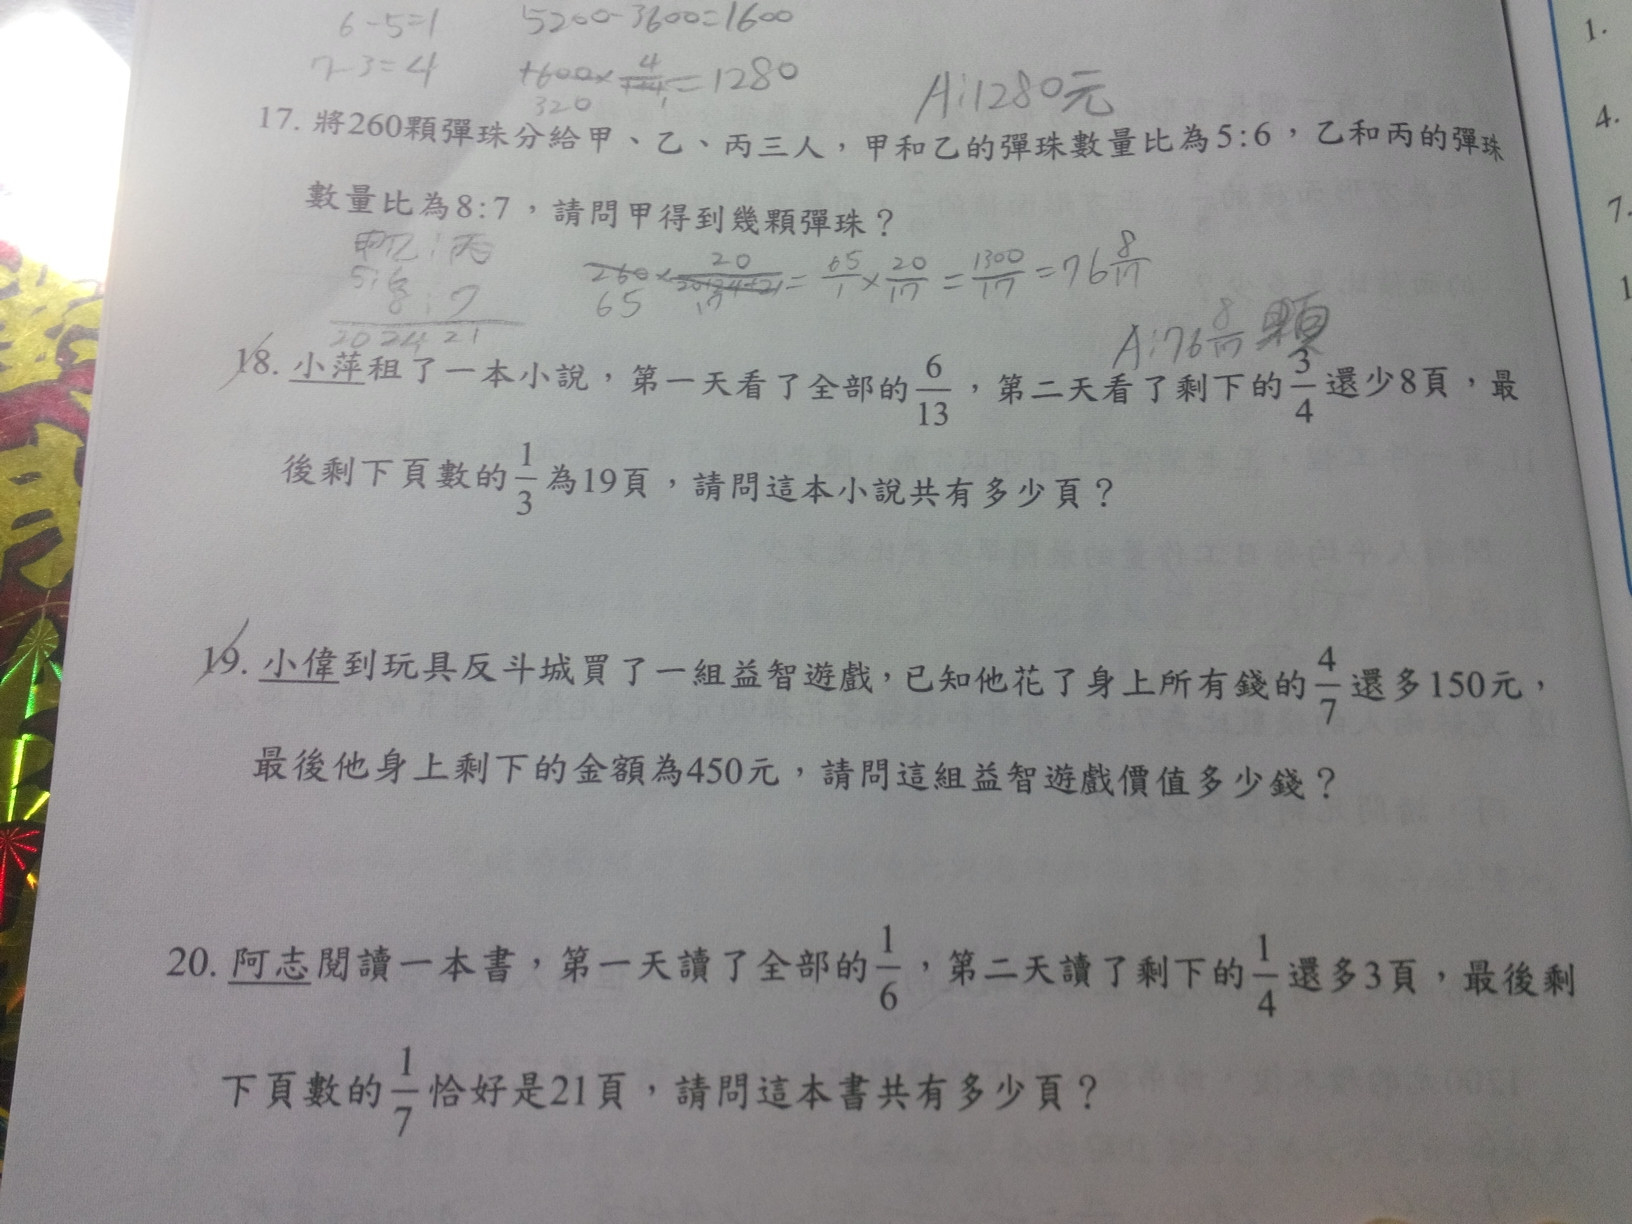 6-5=1 5200-3600=1600
7-3=4 1600×4/1+4=1280
320 1
A:1280元
17. 將260顆彈珠分給甲、乙、丙三人，甲和乙的彈珠數量比為5:6，乙和丙的彈珠
數量比為8:7，請問甲得到幾顆彈珠？
甲:乙:丙
5:6
8:7
20 24 21
260×20/20+24+21=65/1×20/17=1300/17=76 8/17
65 17
A:76 8/17 顆
18. 小萍租了一本小說，第一天看了全部的6/13，第二天看了剩下的3/4還少8頁，最
後剩下頁數的1/3為19頁，請問這本小說共有多少頁？
19. 小偉到玩具反斗城買了一組益智遊戲，已知他花了身上所有錢的4/7還多150元，
最後他身上剩下的金額為450元，請問這組益智遊戲價值多少錢？
20. 阿志閱讀一本書，第一天讀了全部的1/6，第二天讀了剩下的1/4還多3頁，最後剩
下頁數的1/7恰好是21頁，請問這本書共有多少頁？
1.
4.
7.
1